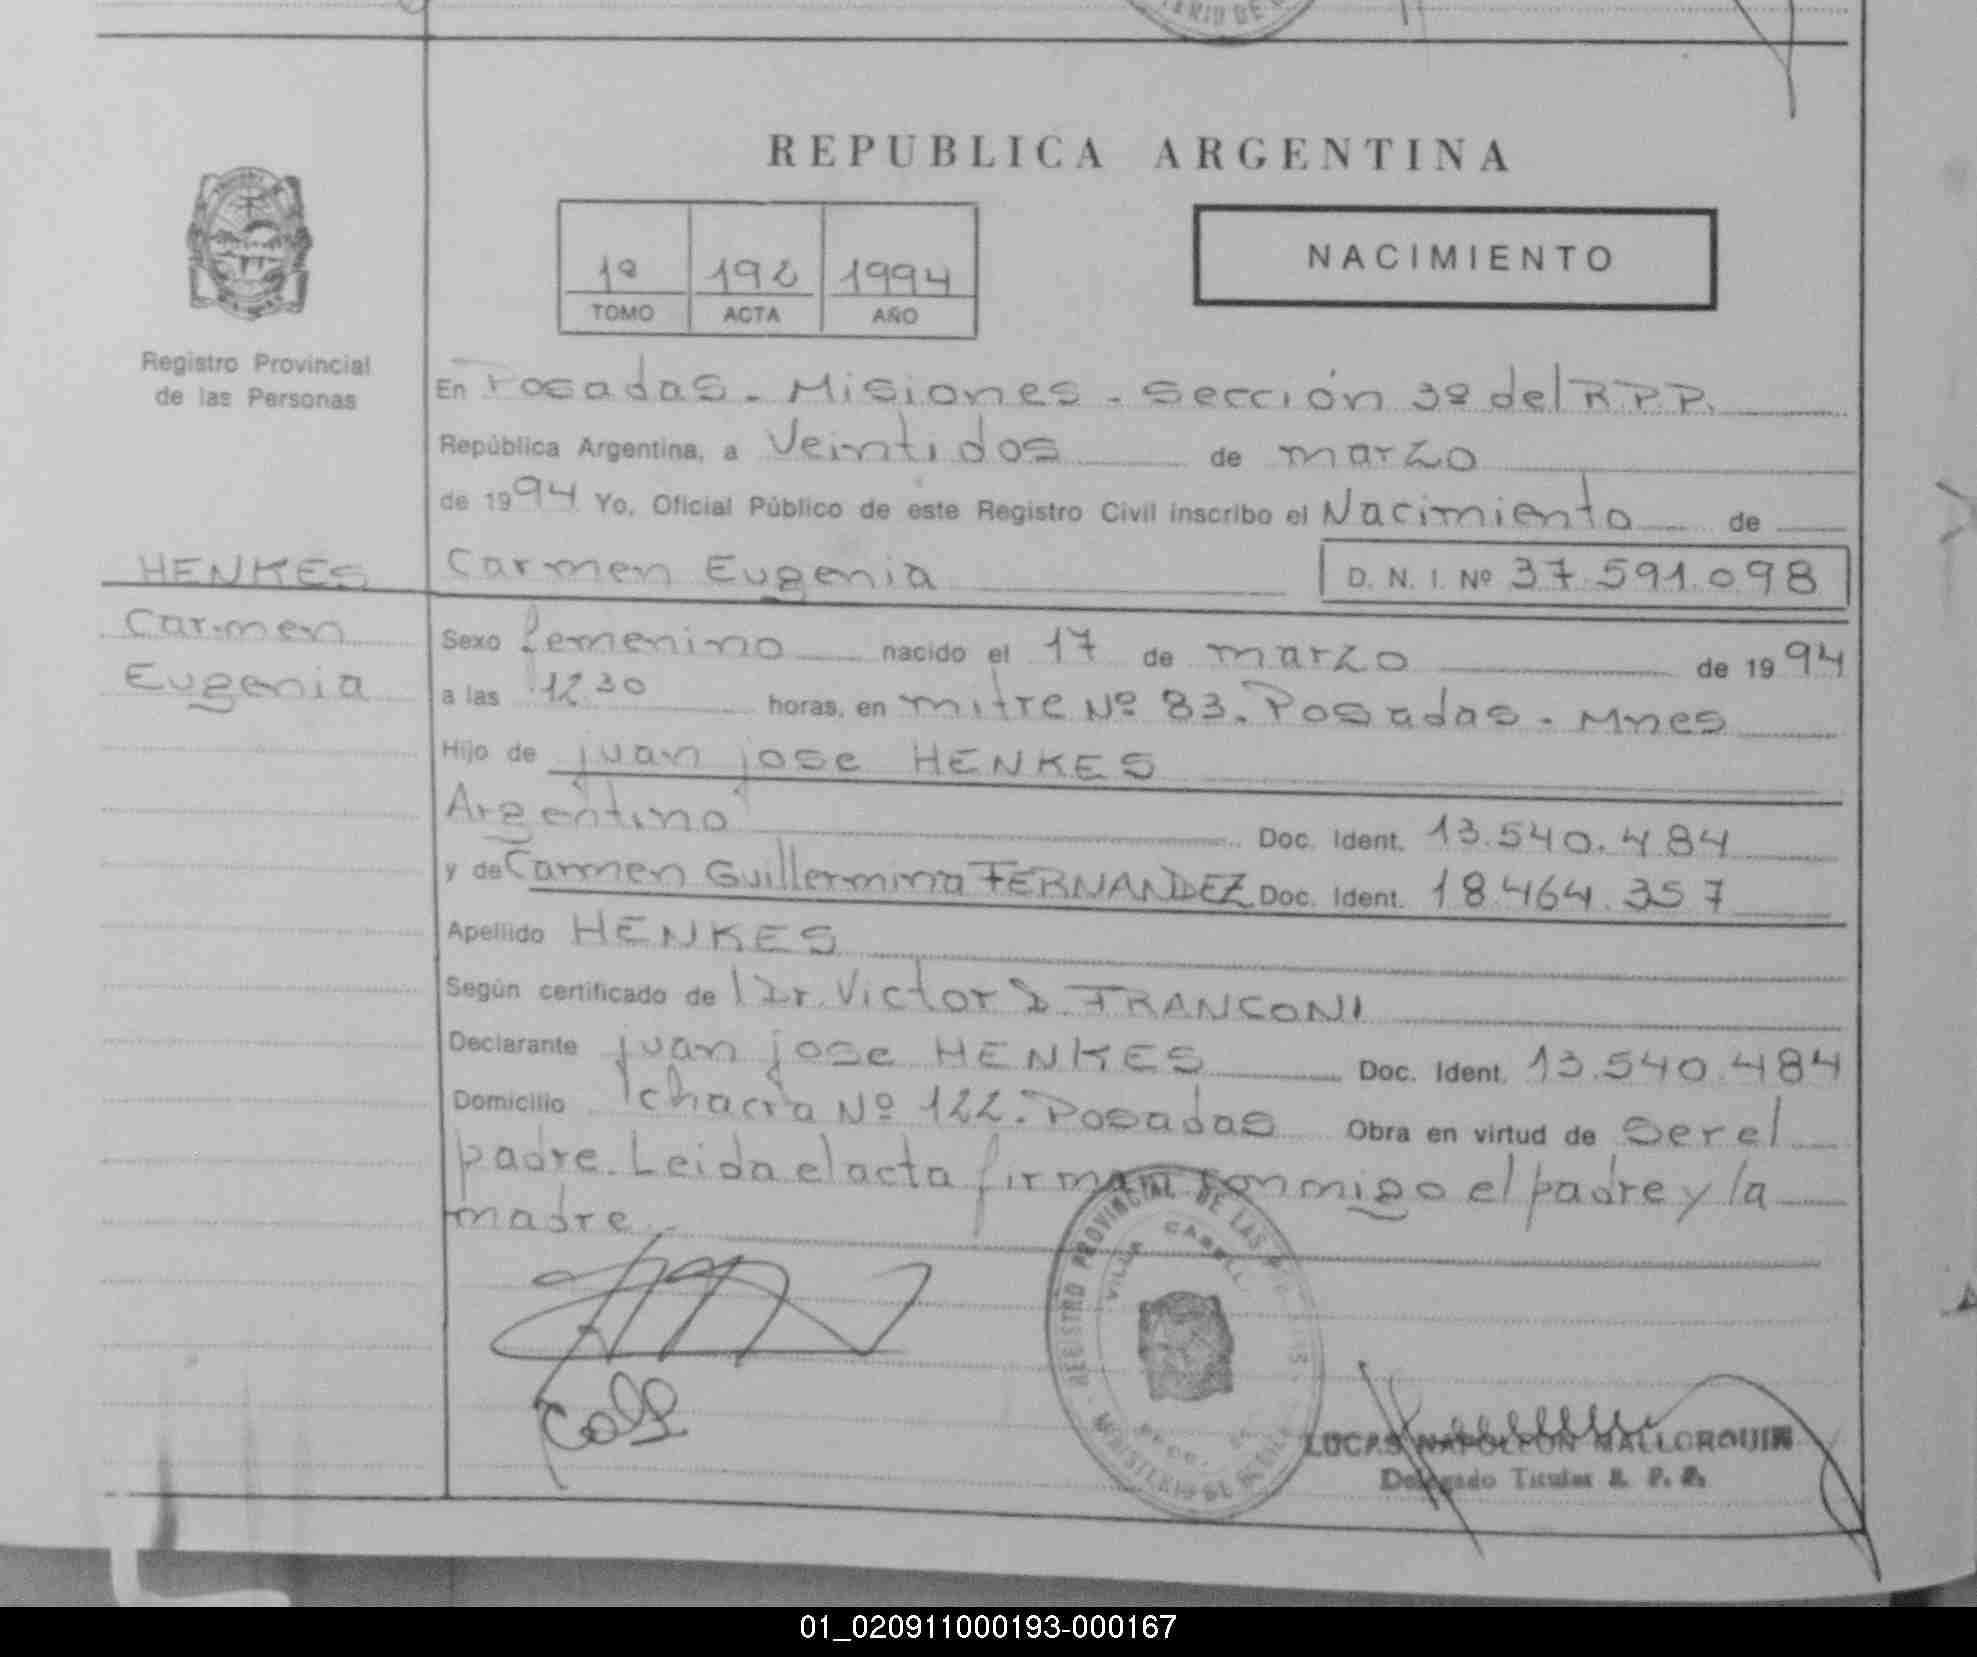 REPUBLICA ARGENTINA
1º 192 1994
TOMO ACTA AÑO
NACIMIENTO
Registro Provincial
de las Personas
En Posadas - Misiones - Sección 3º del R.P.P.
República Argentina, a Veintidos de marzo
de 1994 Yo, Oficial Público de este Registro Civil inscribo el Nacimiento de
Carmen Eugenia D. N. I. Nº 37.591.098
HENKES
Carmen
Eugenia
Sexo femenino nacido el 17 de marzo de 1994
a las 12 30 horas, en mitre Nº 83. Posadas - Mnes
Hijo de juan jose HENKES
Argentino Doc. Ident. 13.540.484
y de Carmen Guillermina FERNANDEZ Doc. Ident. 18.464.357
Apellido HENKES
Según certificado de l Dr. Victor D. FRANCONI
Declarante juan jose HENKES Doc. Ident. 13.540.484
Domicilio chacra Nº 122. Posadas Obra en virtud de ser el
padre. Leida el acta firman conmigo el padre y la
madre.
REGISTRO PROVINCIAL DE LAS
VILLA CABELL
MINISTERIO DE
LUCAS NAPOLEON MALLORQUIN
Delegado Titular R. P. P.
01_020911000193-000167